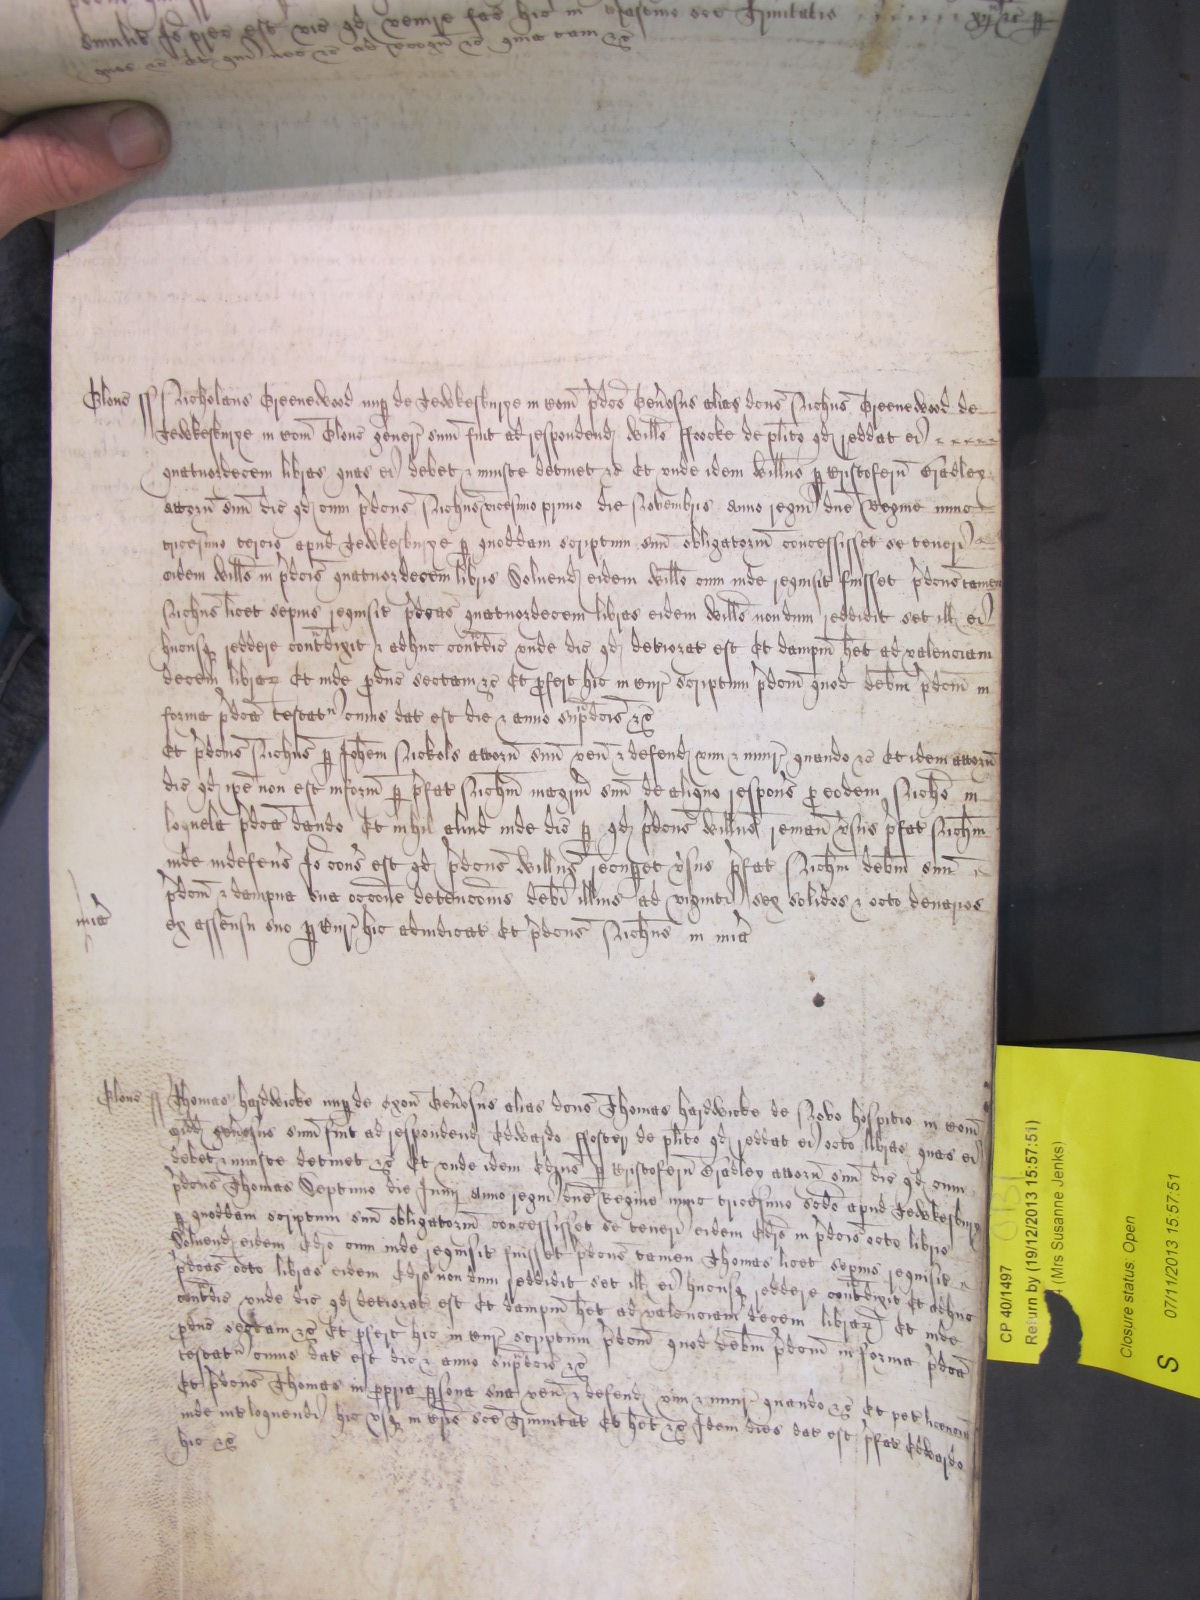 similit Io prec est vic qd venire fac hic in Crastino sce Trinitatis
quos &c Et qui nec &c ad recogn &c quia tam &c
Glouc ss Nicholaus Greenewood nup de Tewkesburye in Com pdco Gen̄osus alias dcus Nichus Greenewood de
Tewkesburye in Com Glouc gener sum fuit ad respondend Willo Foocke de plito qd reddat ei
quatuordecem libras quas ei debet & iniuste detinet &c Et unde idem Willus p Cristoferu Gradley
attorn suu dic qd cum pdcus Nichus vicesimo primo die Novembris Anno regni dne Regine nunc
tricesimo tercio apud Tewkesburye p quoddam scriptum suu obligatoriu concessisset se teneri
eidem Willo in pdcis quatuordecem libris Solvend eidem Willo cum inde requisit fuisset pdcus tamen
Nichus licet sepius requisit pdcas quatuordecem libras eidem Willo nondum reddidit set ill ei
hucusq reddere contradixit & adhuc contradic unde dic qd deteriorat est Et dampnu het ad valenciam
decem librar Et inde pduc sectam &c Et pfert hic in Cur scriptum pdcm quod debm pdcm in
forma pdca testat cuius dat est die & anno supdcis &c
Et pdcus Nichus p Johem Nickols attorn suu ven & defend vim & iniur quando &c Et idem attorn
dic qd ipe non est informat p pfat Nichm magrm suu de aliquo respons p eodem Nicho in
loquela pdca dando Et nihil aliud inde dic p qd pdcus Willus reman vsus pfat Nichm
inde indefens Io cons est qd pdcus Willus recupet vsus pfat Nichm debm suu
pdcm & dampna sua occone detencois debi illius ad viginti sex solidos & octo denarios
mia
ex assensu suo p Cur hic adiudicat Et pdcus Nichus in mia
Glouc ss Thomas Hardwicke nup de Oxon Gen̄osus alias dcus Thomas Hardwicke de Novo Hospitio in Com
Midd gen̄osus sum fuit ad respondend Edwardo Foster de plito qd reddat ei octo libras quas ei
debet & iniuste detinet &c Et unde idem Edrus p Cristoferu Gradley attorn suu dic qd cum
pdcus Thomas Septimo die Junij Anno regni dne Regine nunc tricesimo scdo apud Tewkesburye
p quoddam scriptum suu obligatoriu concessisset se teneri eidem Edro in pdcis octo libris
Solvend eidem Edro cum inde requisit fuisset pdcus tamen Thomas licet sepius requisit
pdcas octo libras eidem Edro nondum reddidit set ill ei hucusq reddere contradixit Et adhuc
contradic unde dic qd deteriorat est Et dampnu het ad valenciam decem librar Et inde
pduc sectam &c Et pfert hic in Cur scriptum pdcm quod debm pdcm in forma pdca
testat cuius dat est die & anno supdcis &c
Et pdcus Thomas in ppria psona sua ven & defend vim & iniur quando &c Et pet licenciam
inde intloquendi hic usq in Cro sce Trinitat Et het &c Idem dies dat est pfat Edwardo
hic &c
CP 40/1497
Return by (19/12/2013 15:57:51)
(Mrs Susanne Jenks)
Closure status: Open
S
07/11/2013 15:57:51